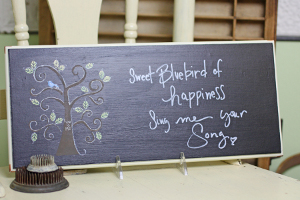 Sweet Bluebird of
happiness
Sing me your
Song